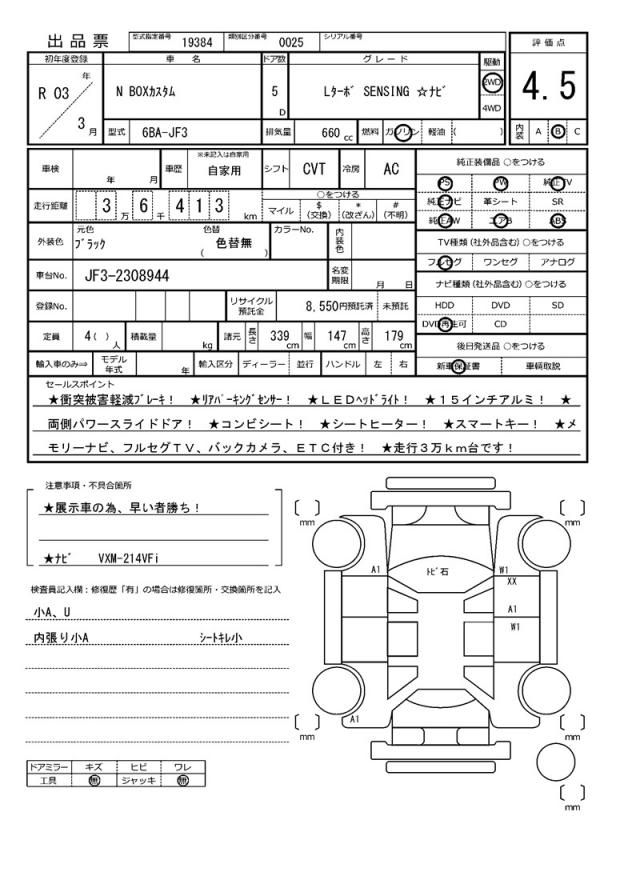 出品票 型式指定番号 19384 類別区分番号 0025 シリアル番号
初年度登録 車 名 ドア数 グレード 駆動 評価点
R 03 年 3 月 N BOXカスタム 5 D Lターボ SENSING ☆ナビ 2WD 4WD 4.5
型式 6BA-JF3 排気量 660 cc 燃料 ガソリン 軽油 ( ) 内装 A B C
車検 年 月 車歴 ※未記入は自家用 自家用 シフト CVT 冷房 AC
走行距離 3 万 6 千 4 1 3 km ○をつける マイル $ (交換) * (改ざん) # (不明)
外装色 元色 ブラック 色替 色替無 ( ) カラーNo. 内装色
車台No. JF3-2308944 名変期限 月 日
登録No. リサイクル預託金 8,550円預託済 未預託
定員 4( ) 人 積載量 kg 諸元 長さ 339 cm 幅 147 cm 高さ 179 cm
輸入車のみ⇒ モデル年式 年 輸入区分 ディーラー 並行 ハンドル 左 右
純正装備品 ○をつける
PS PW 純正TV
純正ナビ 革シート SR
純正AW エアB ABS
TV種類(社外品含む)○をつける
フルセグ ワンセグ アナログ
ナビ種類(社外品含む)○をつける
HDD DVD SD
DVD再生可 CD
後日発送品 ○をつける
新車保証書 車輌取説
セールスポイント
★衝突被害軽減ブレーキ! ★リアパーキングセンサー! ★LEDヘッドライト! ★15インチアルミ! ★
両側パワースライドドア! ★コンビシート! ★シートヒーター! ★スマートキー! ★メ
モリーナビ、フルセグTV、バックカメラ、ETC付き! ★走行3万km台です!
注意事項・不具合箇所
★展示車の為、早い者勝ち!
★ナビ VXM-214VFi
検査員記入欄:修復歴「有」の場合は修復箇所・交換箇所を記入
小A、U
内張り小A シートキレ小
ドアミラー キズ ヒビ ワレ
工具 無 ジャッキ 無
mm
mm
A1 トビ石 W1
XX
A1
W1
A1
mm
mm
mm